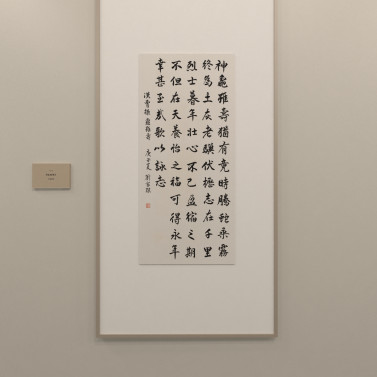 神龜雖壽猶有竟時騰蛇乘霧
終為土灰老驥伏櫪志在千里
烈士暮年壯心不已盈縮之期
不但在天養怡之福可得永年
幸甚至哉歌以詠志
漢曹操龜雖壽 庚子夏 劉